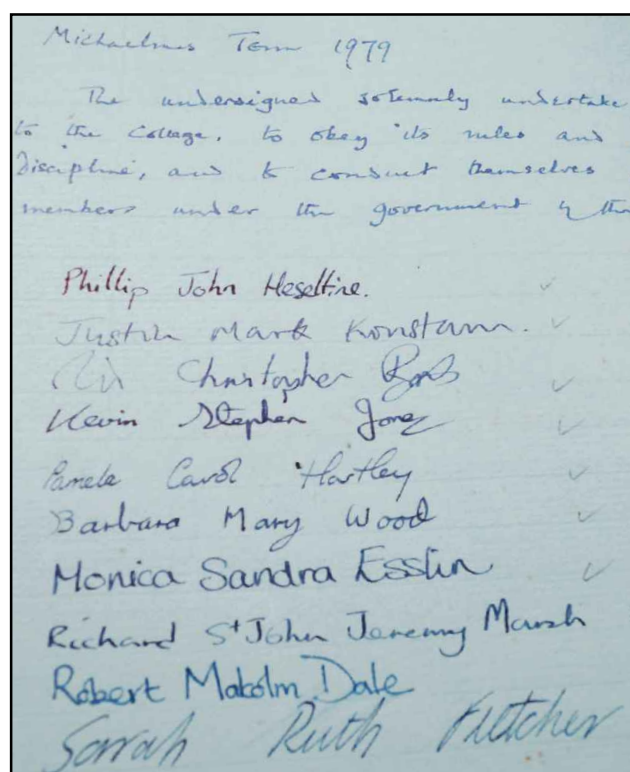 Michaelmas Term 1979
The undersigned solemnly undertake
to the College, to obey its rules and
Discipline, and to conduct themselves
members under the government of the
Phillip John Heseltine.
Justin Mark Konstam.
Christopher
Kevin Stephen Jones
Pamela Carol Hartley
Barbara Mary Wood
Monica Sandra Esslin
Richard St John Jeremy Marsh
Robert Malcolm Dale
Sarah Ruth Fletcher